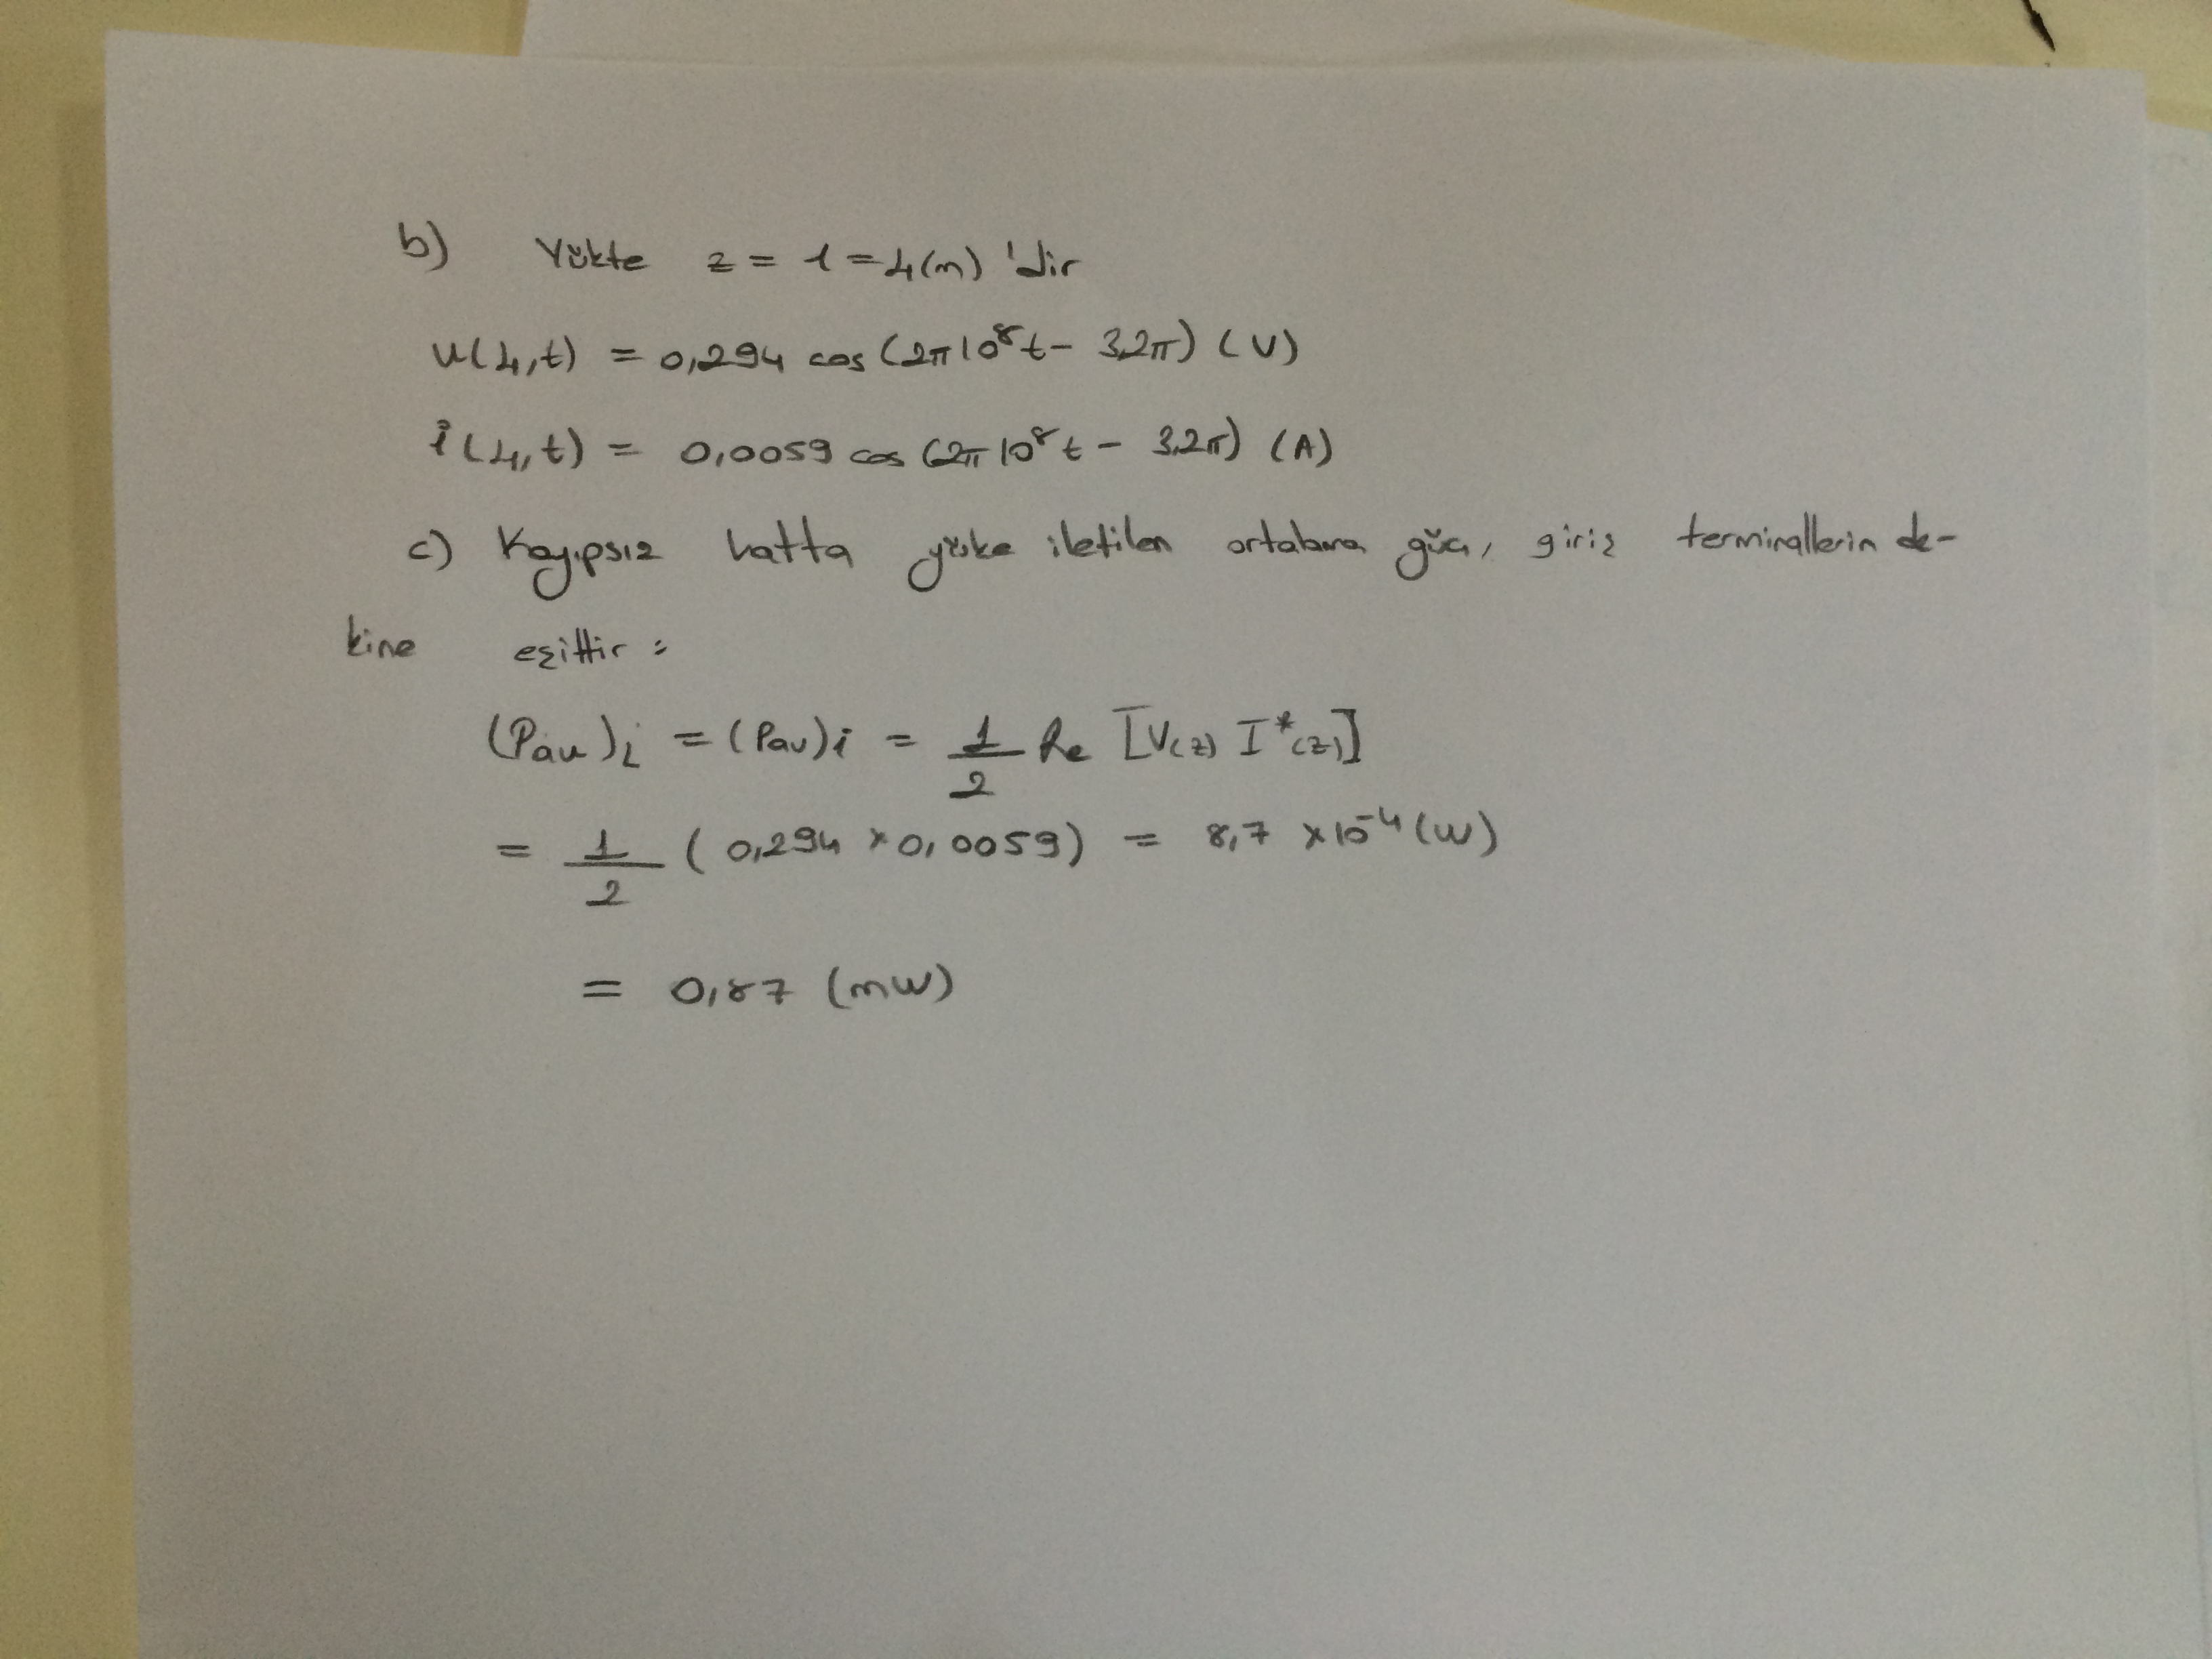 b) Yükte z = l = 4(m) 'dir
u(4,t) = 0,294 cos (2π10⁸t - 3,2π) (V)
i(4,t) = 0,0059 cos (2π10⁸t - 3,2π) (A)
c) Kayıpsız hatta yüke iletilen ortalama güç, giriş terminallerin de-
kine eşittir :
(Pav)L = (Pav)i = 1/2 Re [V(z) I*(z)]
= 1/2 (0,294 x 0,0059) = 8,7 x10⁻⁴ (W)
= 0,87 (mW)